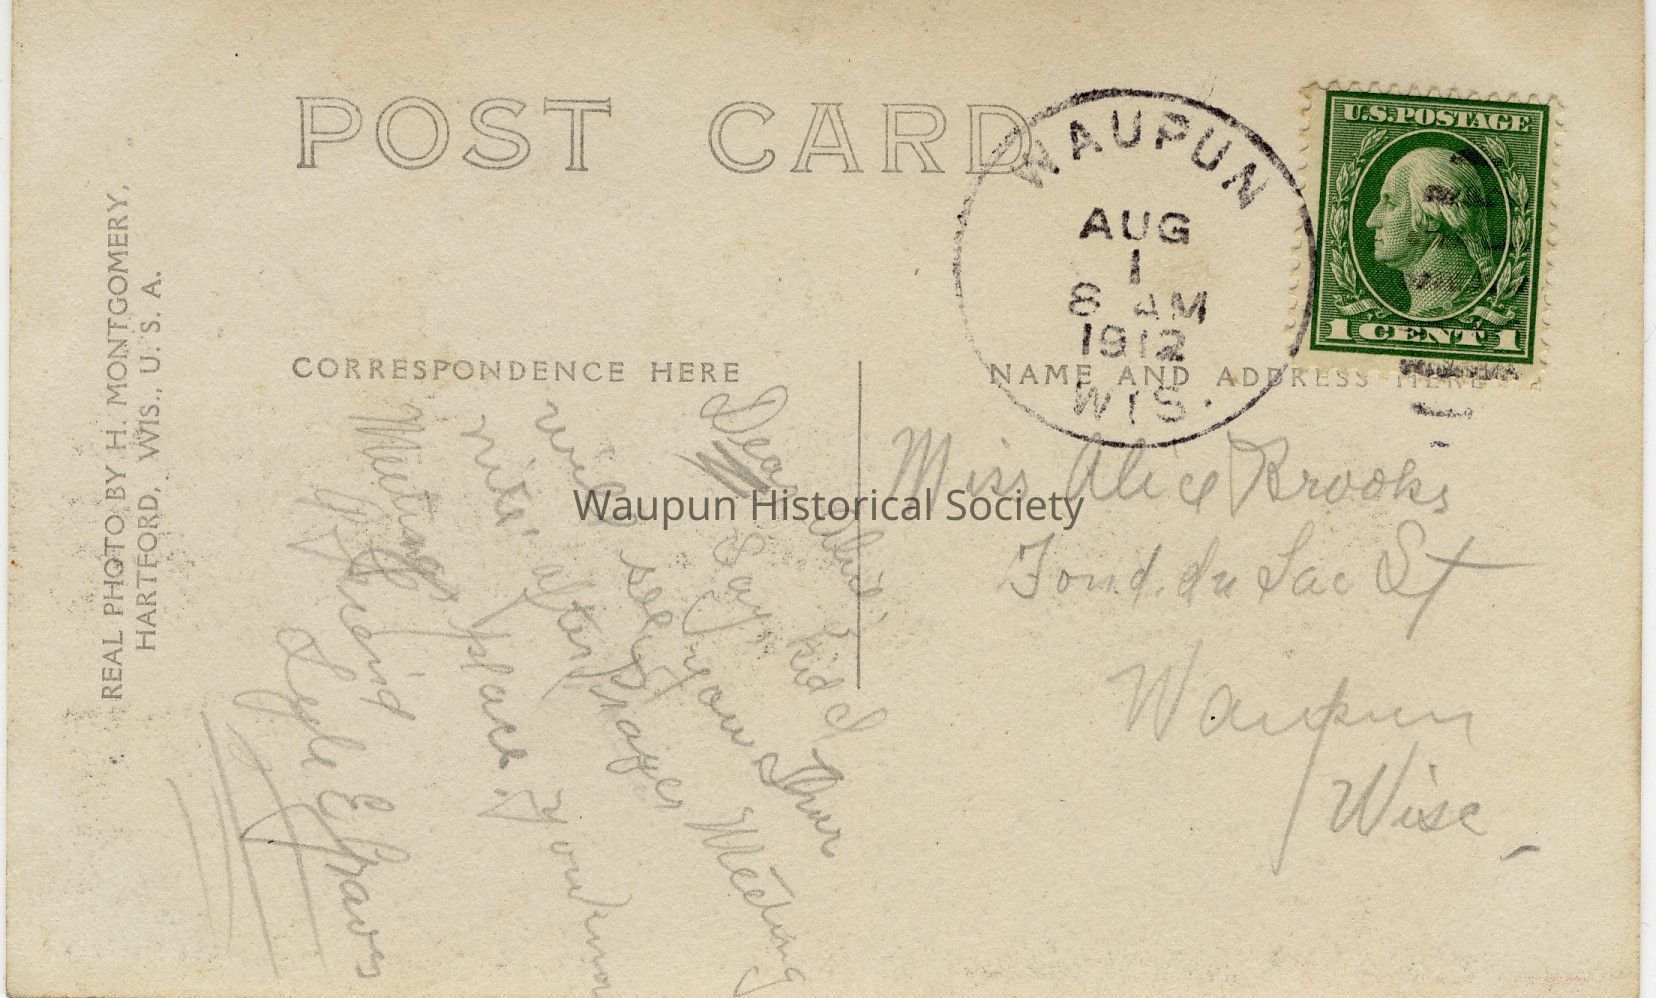 POST CARD
WAUPUN
AUG
1
8 AM
1912
WIS.
U.S. POSTAGE
1 CENT 1
REAL PHOTO BY H. MONTGOMERY,
HARTFORD, WIS., U. S. A.
CORRESPONDENCE HERE
NAME AND ADDRESS HERE
Dear Alice,
Say, kid I
will see you Thur
nite, after prayer Meeting
place.
Meeting
Friend
Lyle Graves
Miss Alice Brooks
Fond du Lac St
Waupun
Wisc
Waupun Historical Society